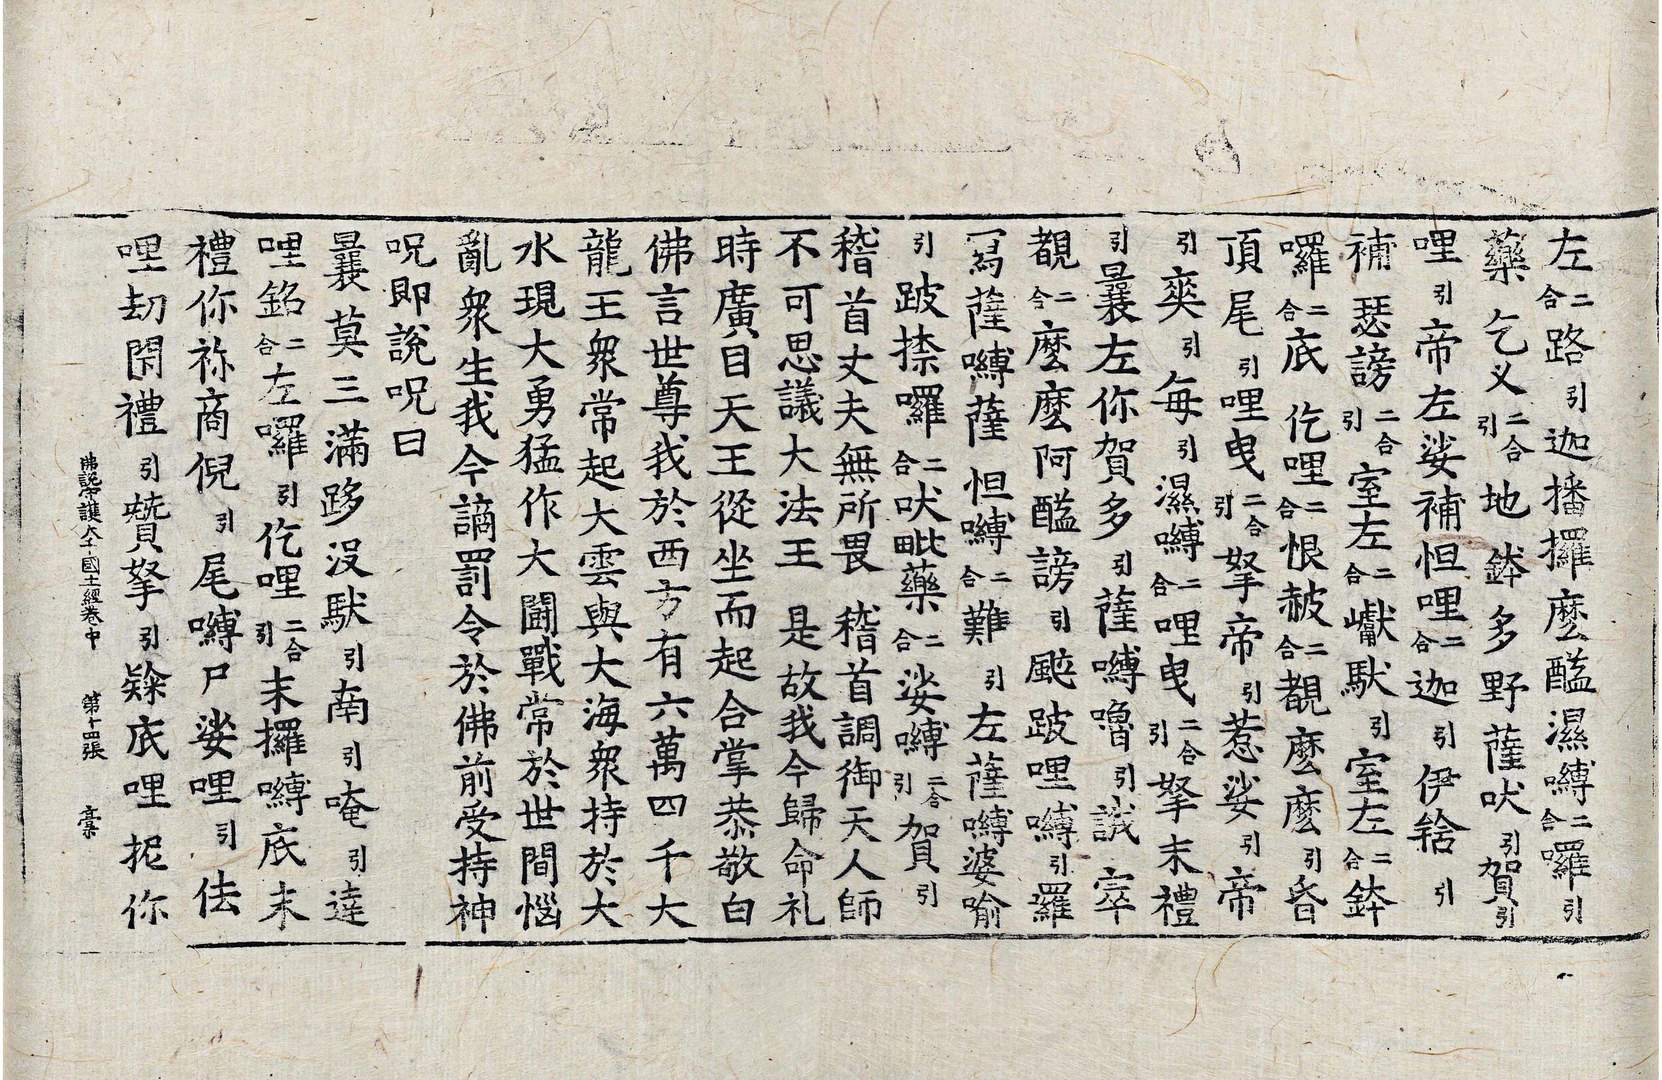 左二合路引迦播攞麼醯濕嚩二合囉引
藥乞义二合引地鉢多野薩吠引賀引
哩引帝左娑補怛哩二合迦引伊捨引
補瑟謗二合引室左二合巘馱引室左二合鉢
囉二合底仡哩二合恨赦二合覩麼麼引昏
頂尾引哩曳二合引拏帝引惹娑引帝
引奕引每引濕嚩二合哩曳二合引拏末禮
引曩左你賀多引薩嚩嚕引誐窣
覩二合麼麼阿醯謗引颰跛哩嚩引羅
寫薩嚩薩怛嚩二合難引左薩嚩婆喻
引跛捺囉二合吠毗藥二合娑嚩二合引賀引
稽首丈夫無所畏稽首調御天人師
不可思議大法王是故我今歸命礼
時廣目天王從坐而起合掌恭敬白
佛言世尊我於西方有六萬四千大
龍王衆常起大雲與大海衆持於大
水現大勇猛作大鬪戰常於世間惱
亂衆生我今謫罰令於佛前受持神
呪即說呪曰
曩莫三滿跢没馱引南引唵引達
哩銘二合左囉引仡哩二合引末攞嚩底末
禮你祢商倪引尾嚩尸娑哩引佉
哩刧閇禮引賛拏引底哩抳你
佛說守護大千國土經卷中 第十四張 稾